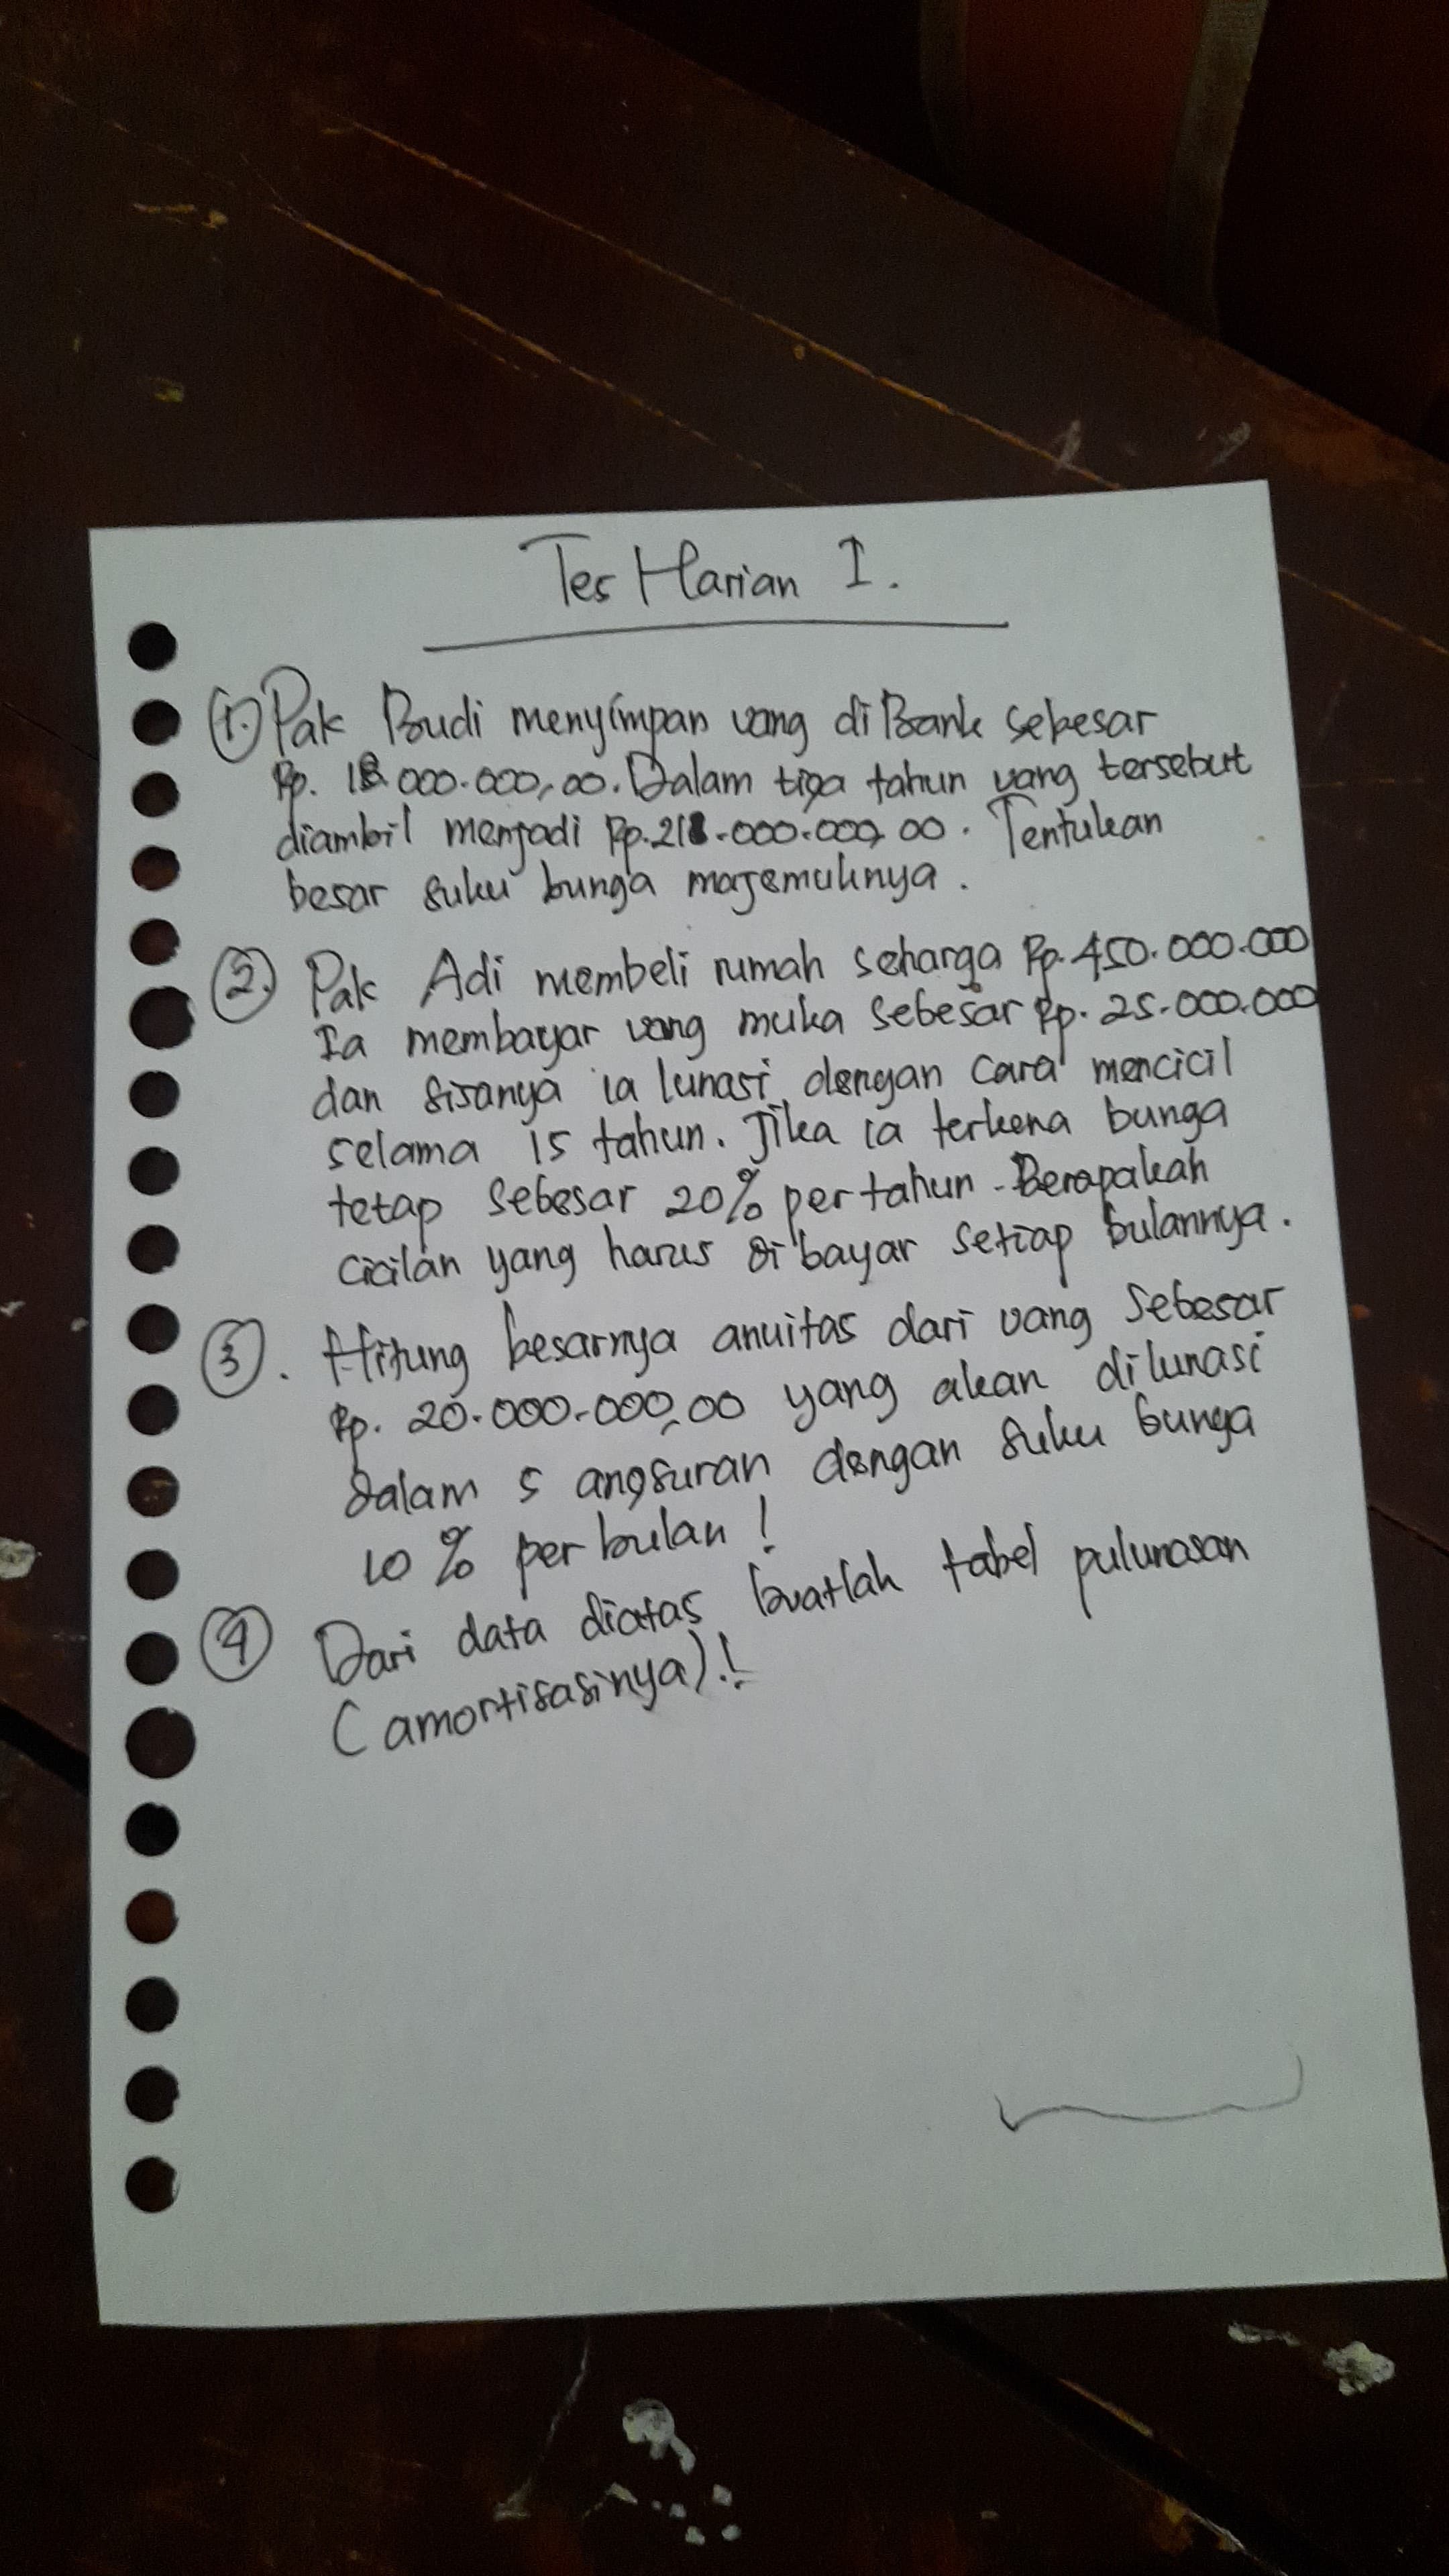 Tes Harian I.
1. Pak Budi menyimpan uang di Bank sebesar
Rp. 18.000.000,00. Dalam tiga tahun uang tersebut
diambil menjadi Rp.218.000.000,00. Tentukan
besar suku bunga majemuknya.
2. Pak Adi membeli rumah seharga Rp.450.000.000
Ia membayar uang muka sebesar Rp. 25.000.000
dan sisanya ia lunasi dengan cara mencicil
selama 15 tahun. Jika ia terkena bunga
tetap sebesar 20% pertahun. Berapakah
cicilan yang harus dibayar setiap bulannya.
3. Hitung besarnya anuitas dari uang sebesar
Rp. 20.000.000,00 yang akan dilunasi
dalam 5 angsuran dengan suku bunga
10% perbulan!
4 Dari data diatas buatlah tabel pulunasan
(amortisasinya).!